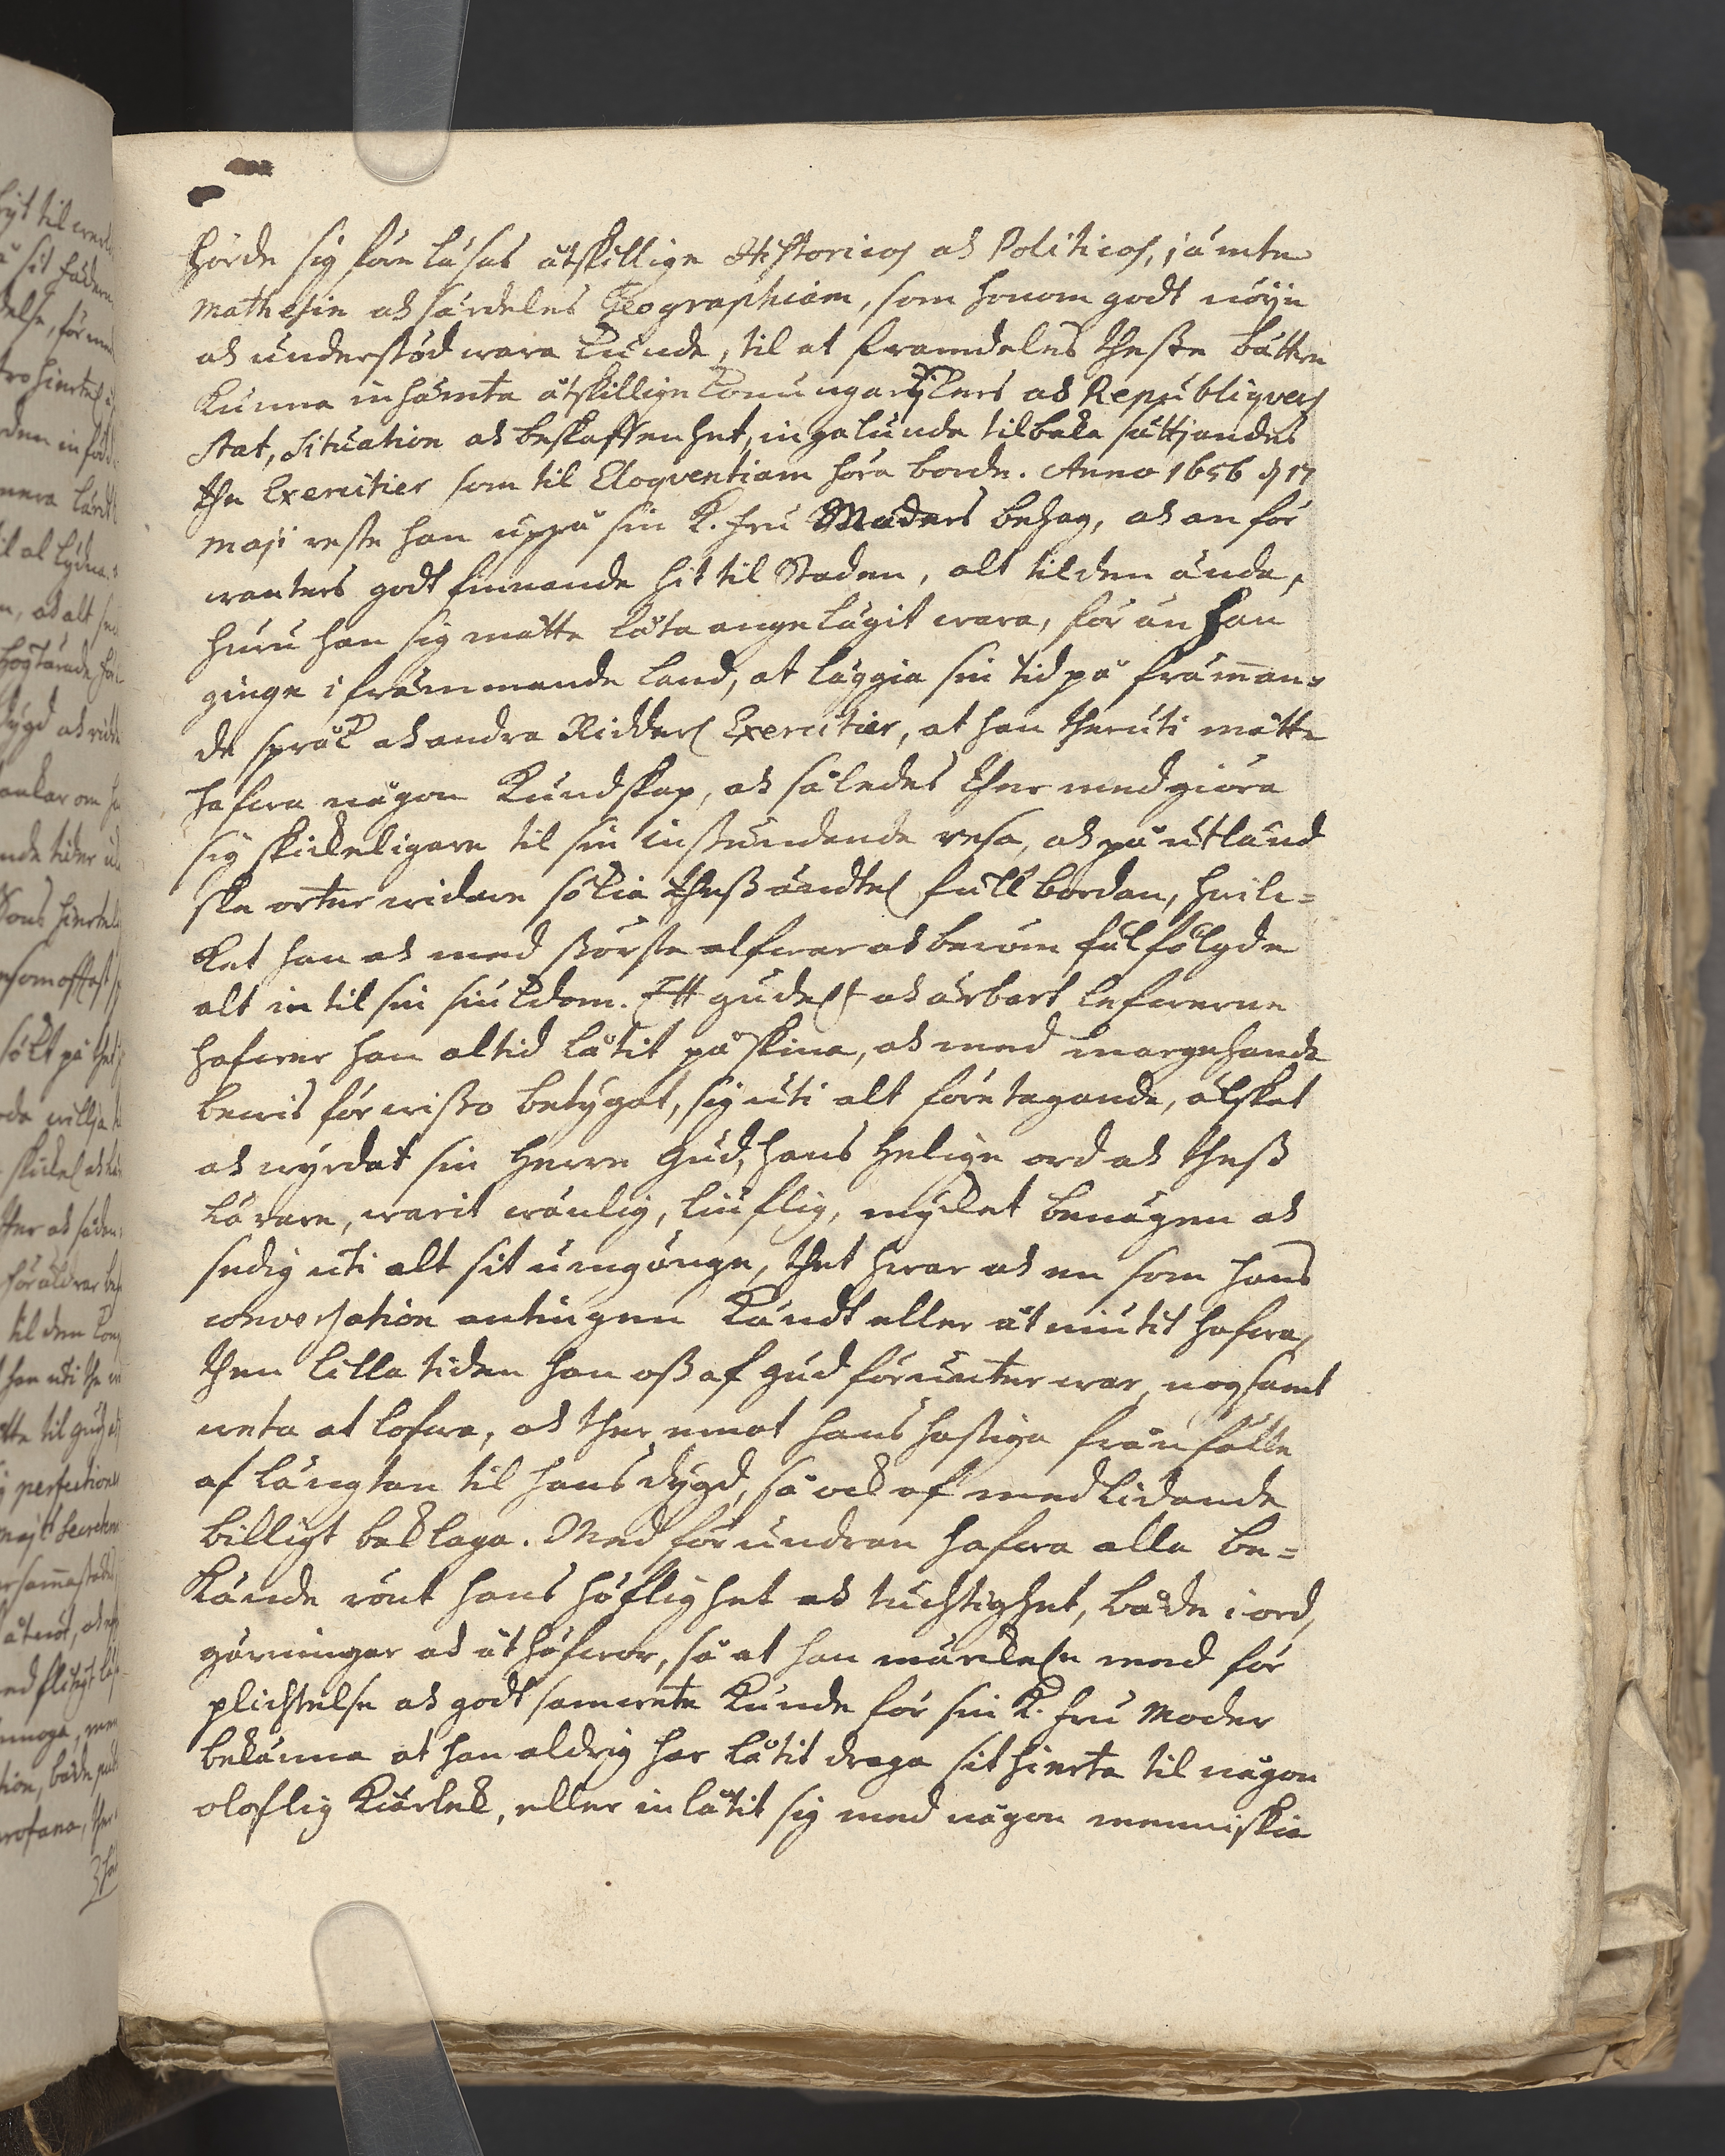 hörde sig före läsas åtskillige Historicos ok Politicos, jämte
Mathesin ok särdeles Geographiam, som honom godt nöye
ok understöd wara kunde, til at framdeles thesse bättre
kunna inhämta åtskillige konungarijkers ok Republiqvers
stat, situation ok beskaffenhet, ingalunda tilbaka sättjandes
the Exercitier som til Eloqventiam höra borde. Anno 1656 d 17
Maji reste han uppå sin K. Fru Moders behag, ok an för
wanters godt finnande hit til Staden, alt til den ända,
huru han sig måtte låta angelägit wara, för än han
ginge i främmande land, at läggia sin tid på främan-
de språk ok andra Ridderl Exercitier, at han theruti måtte
hafwa någon Kundskap, ok således ther med giöra
sig skickeligare til sin instundande resa, ok på utländ
ske orter widare sökia thess ändtel full bordan, hwil-
ket han ok med störste alfwar ok beröm fulfölgde
alt in til sin siukdom. Ett gudel:t ok ärbart lefwerne
hafwer han altid låtit påskina, ok med margehanda
bewis förwisso betygat, sig uti alt företagande, älskat
ok wyrdat sin Herre Gud, hans helige ord ok thess
Lärare, warit wänlig, liuflig, mycket benägen ok
sedig uti alt sit umgänge, thet hwar ok en som hans
conversation antingen kändt eller åtniutit hafwa,
then lilla tiden han oss af Gud förunter war, nogsamt
weta at lofwa, ok ther emot hans hastiga frånfälle
af längtan til hans dygd, så ock af medlidande
billigt beklaga. Med förundran hafwa alla be-
kände rönt hans höflighet ok tuchtighet, både i ord,
gärningar ok åthäfwor, så at han mårkel:n med för
plichtelse ok godt samwete kunde för sin K. Fru Moder
bekänna at han aldrig har låtit draga sit hierta til någon
oloflig Kiärlek, eller inlåtit sig med någon menniskia